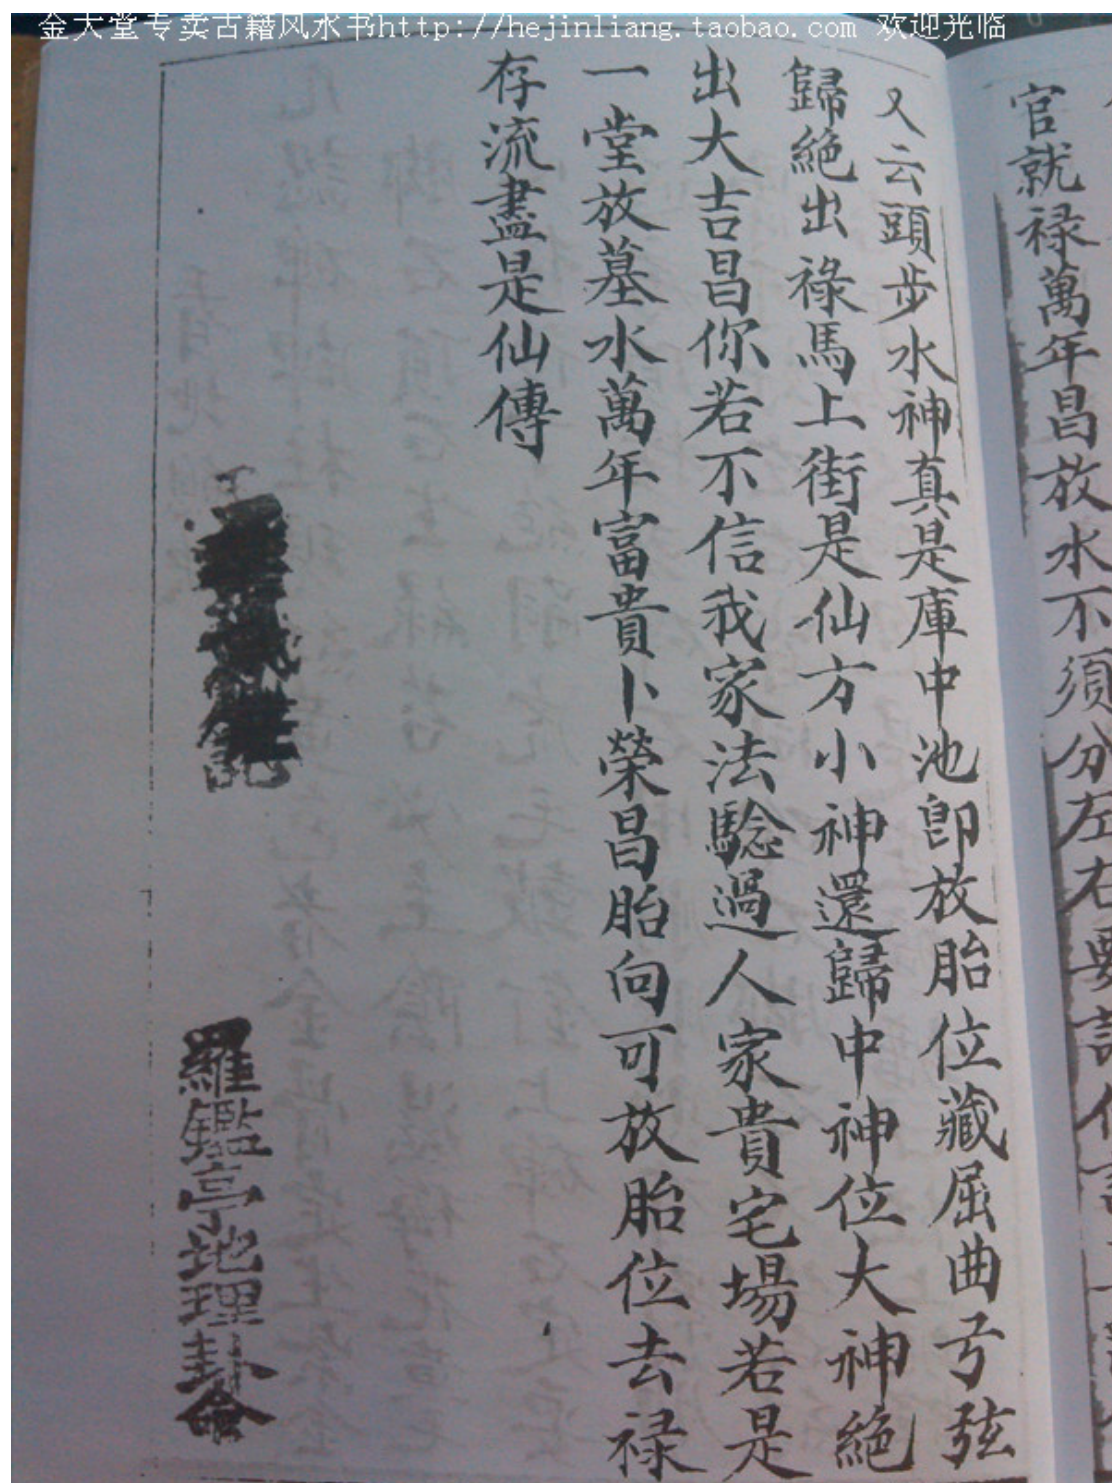 金天堂专卖古籍风水书http://hejinliang.taobao.com 欢迎光临
官就禄萬年昌放水不須分左右要
又云頭步水神真是庫中池卽放胎位藏屈曲弓弦
歸絶出祿馬上街是仙方小神還歸中神位大神絶
出大吉昌你若不信我家法騐過人家貴宅場若是
一堂放墓水萬年富貴卜榮昌胎向可放胎位去禄
存流盡是仙傳
羅鑑亭地理卦命